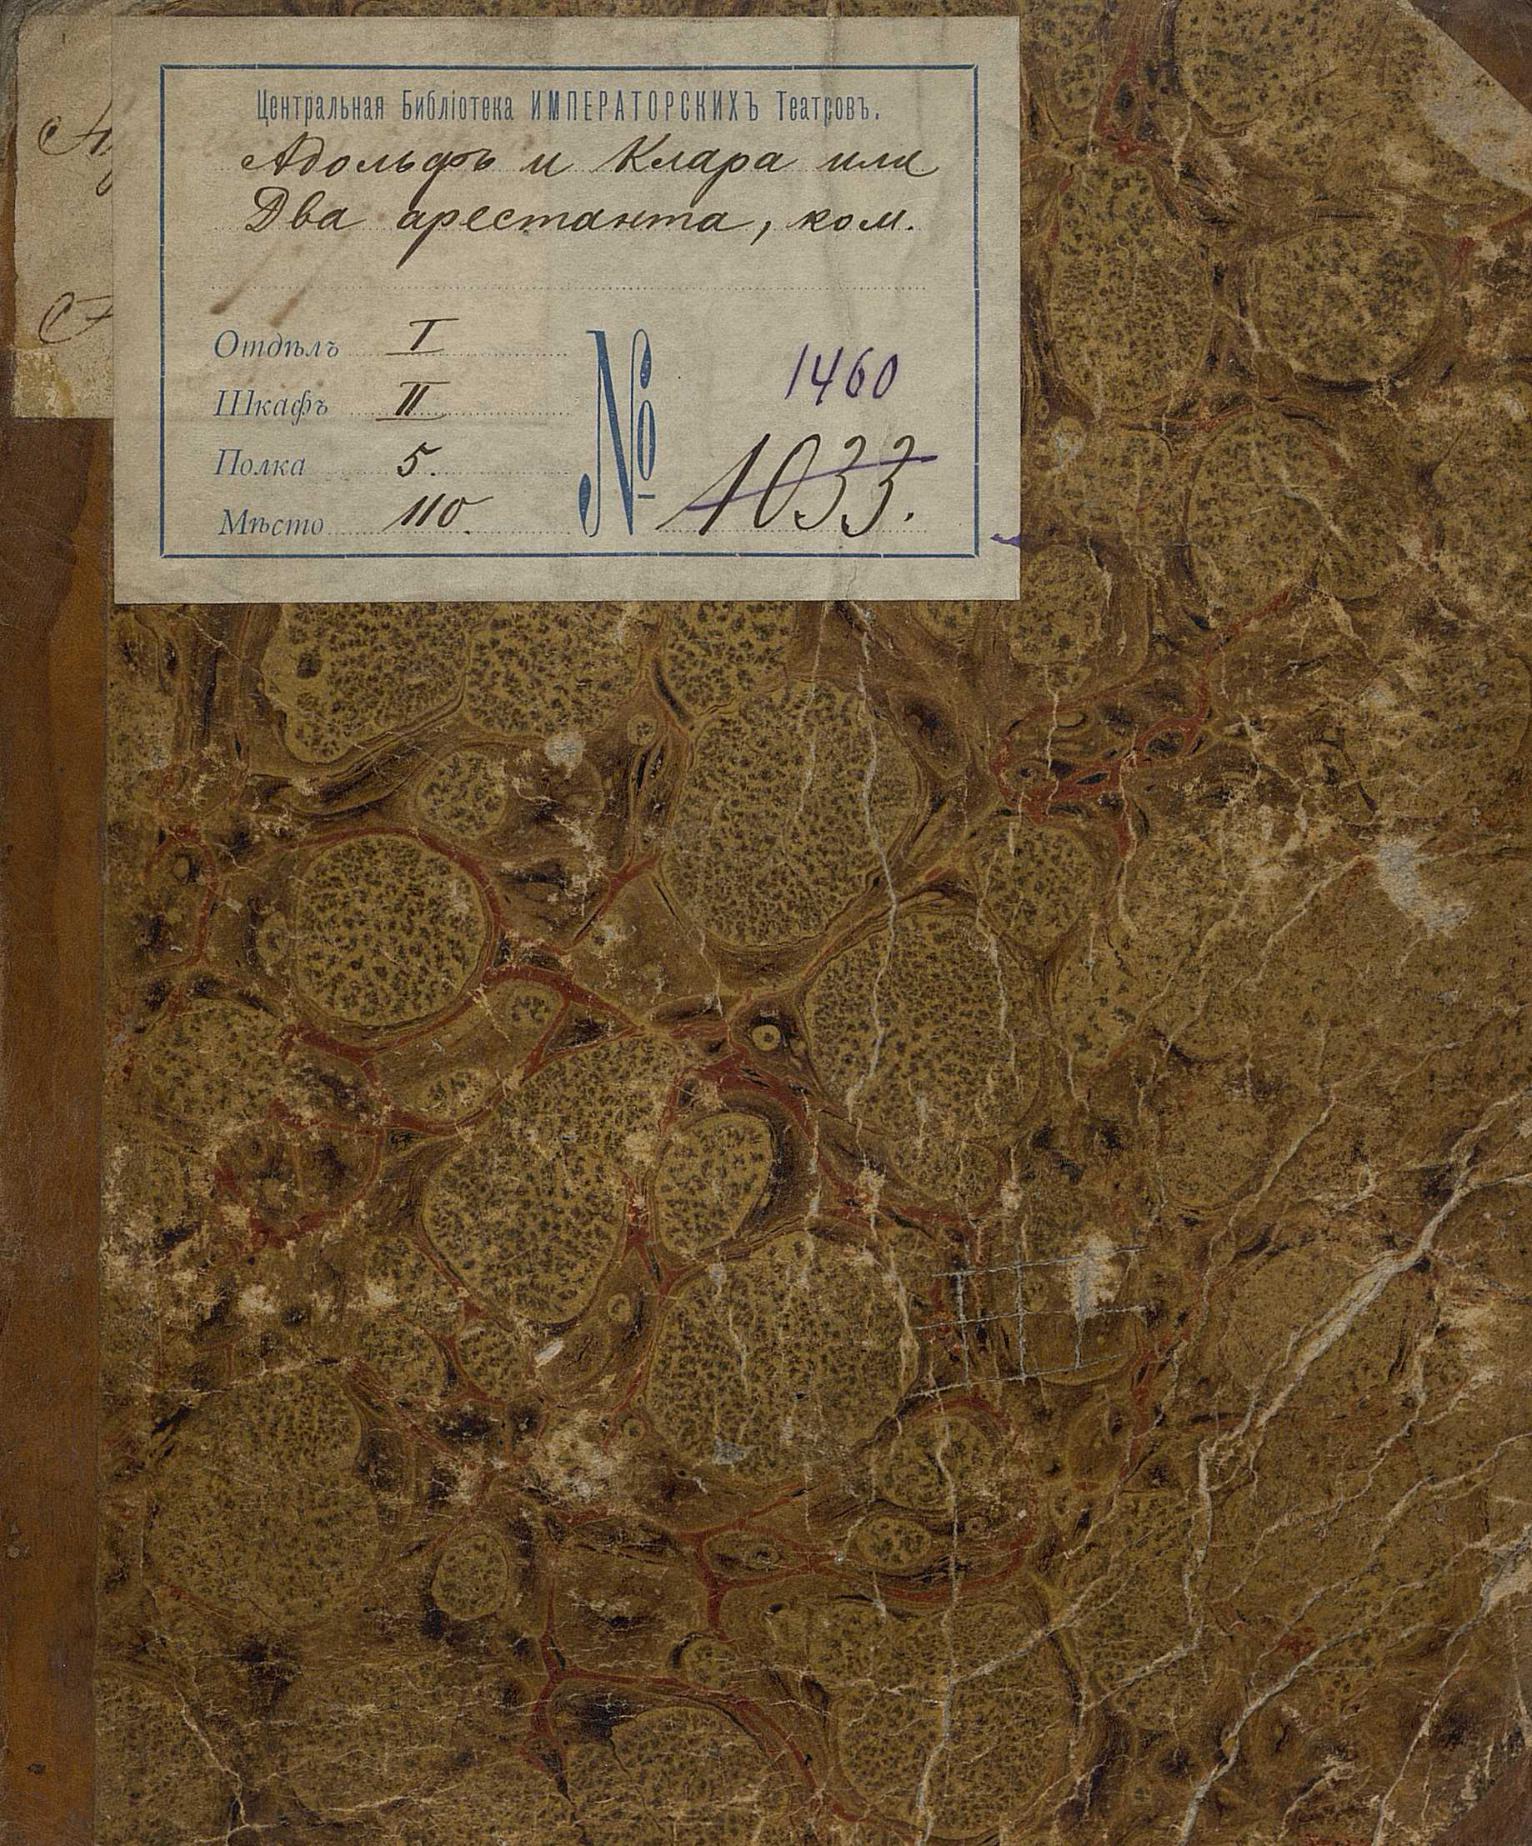 Центральная Библіотека ИМПЕРАТОРСКИХЪ Театровъ.
Адольфъ и Клара или
Два арестанта, ком.
Отдѣлъ I
Шкафъ II
Полка 5.
Мѣсто 110.
№ 1460
1033.